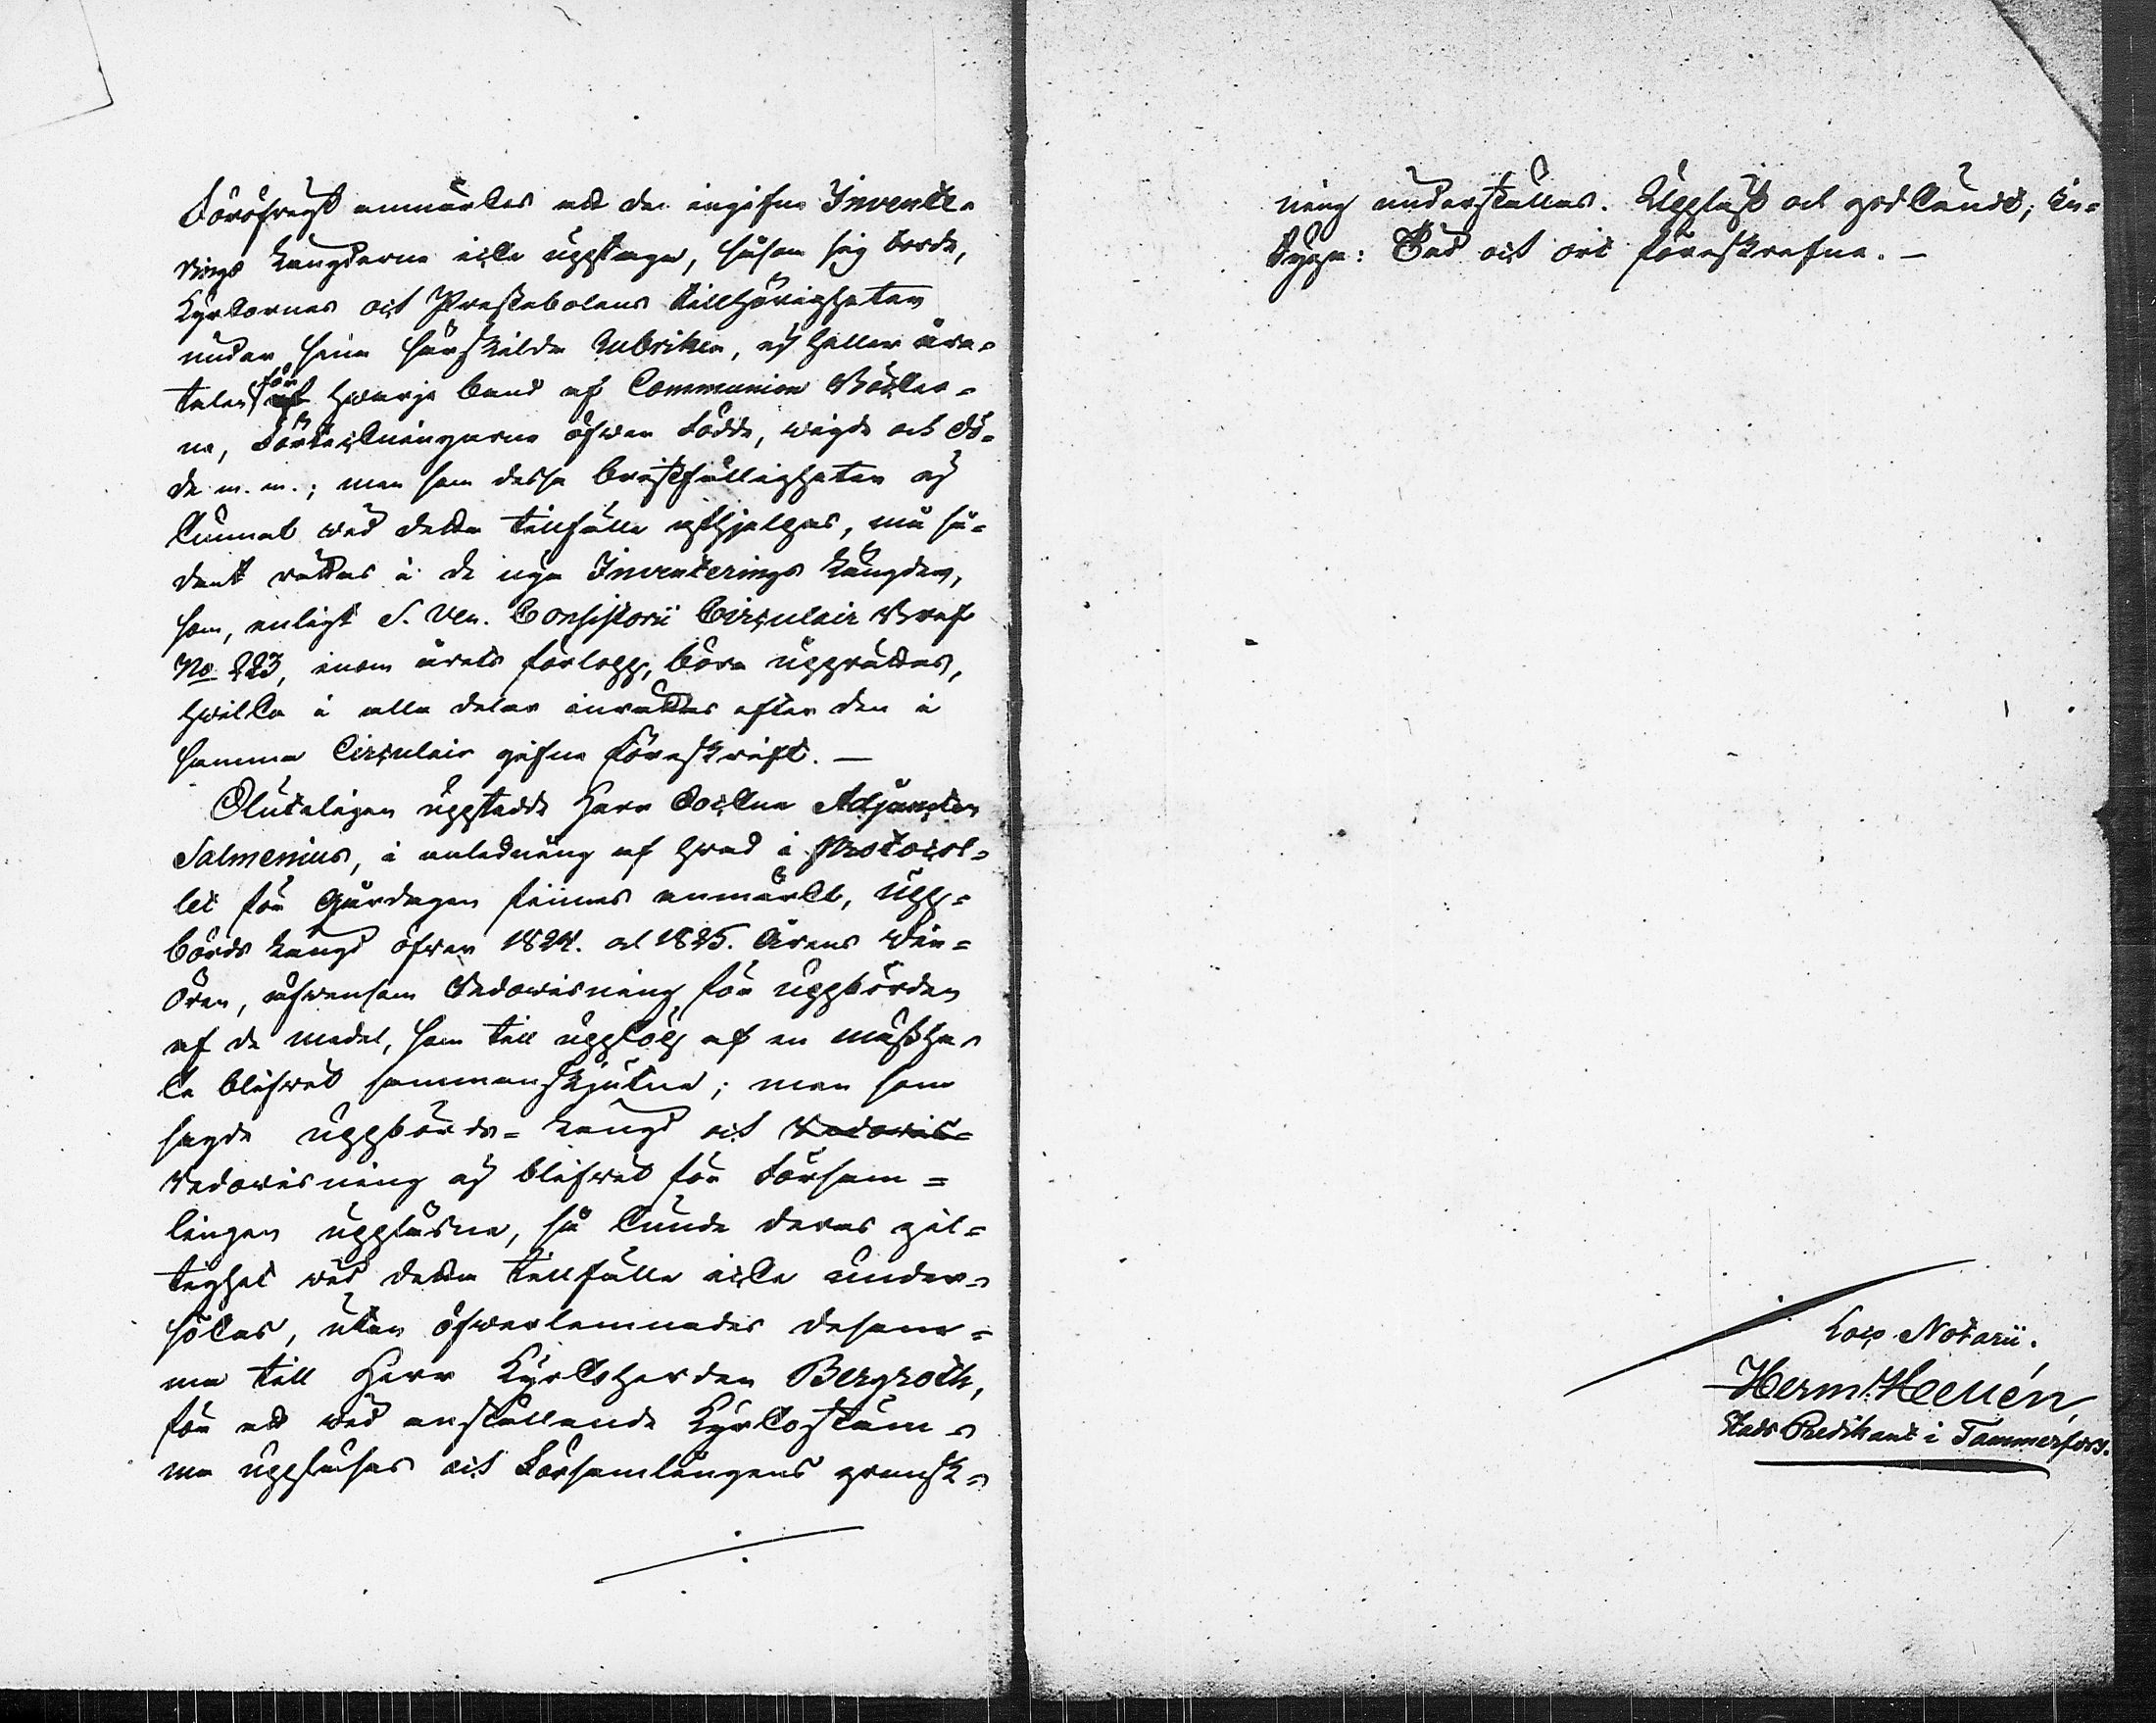 Föröfrigt anmärktes att de ingifne Invente-
rings Längderne icke upptaga, såsom sig borde,
Kyrkornes och Prestebolens tillhörigheter
under sina särskilda Rubriker, ej heller åra-
talen för hwarje band af Communion Böcker-
na, Förteckningarne öfwer Födde, wigde och dö-
de m. m.; men som dessa bristfälligheter ej
kunnat wid detta tillfälle afhjelpas, må så-
dant rättas i de nya Inventerings Längder,
som, enligt S. Ven. Consistorii Circulair Bref
No 223, inom årets förlopp, böra upprättas,
hwilka i alla delar inrättas efter den i
samma Circulair gifne föreskrift. —
Sluteligen uppstedde Herr Sockne Adjuncten
Salmenius, i anledning af hwad i Protocol-
let för Gårdagen finnes anmärkt, Upp-
börds Längd öfwer 1824. och 1825. Årens
ören, äfwensom Redowisning för uppbörden
af de medel, som till uppköp af en mässha-
ke blifwit sammanskjutne; men som
sagde uppbörds- Längd och Redowis-
Redowisning ej blifwit för Försam-
lingen uppläsne, så kunde deras gil-
tighet wid detta tillfälle icke under-
sökas, utan öfwerlemnades desam-
ma till Herr Kyrkoherden Bergroth,
för att wid anställande Kyrkostäm-
ma uppläsas och Församlingens gransk-
ning underställas. Uppläst och godkändt; in-
tyga: Tid och ort föreskrefne. —
Loco Notarii.
Herm. Hellén,
Stads Predikant i Tammerfors.